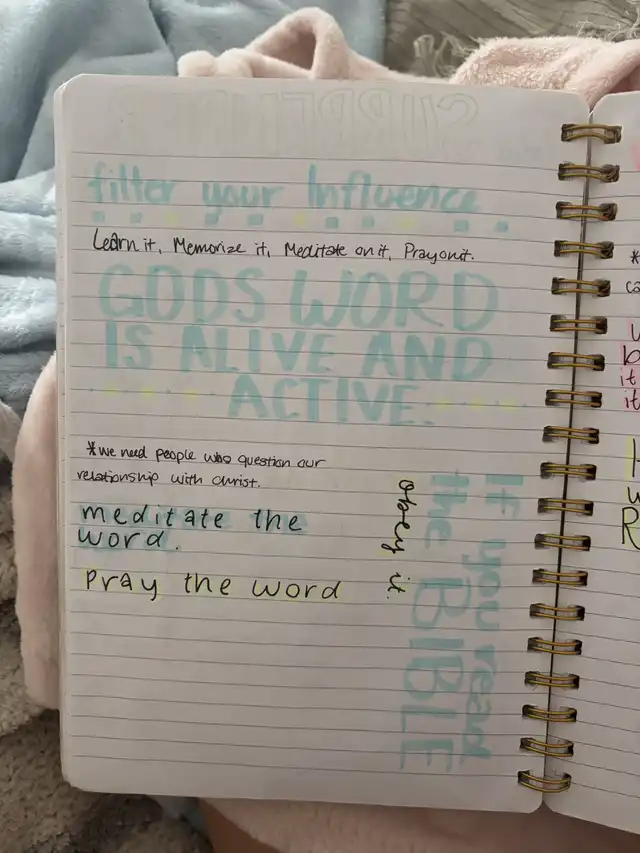 filter your Influence
Learn it, Memorize it, Meditate on it, Pray on it.
GODS WORD
IS ALIVE AND
ACTIVE.
*we need people who question our
relationship with christ.
meditate the
word.
Pray the word
If you read
the BIBLE
obey it.